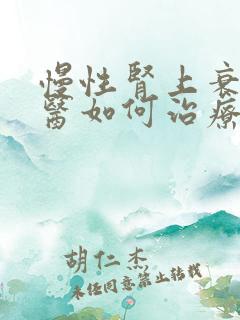 慢性腎上衰
醫如何治療
胡仁杰
未经同意禁止转载